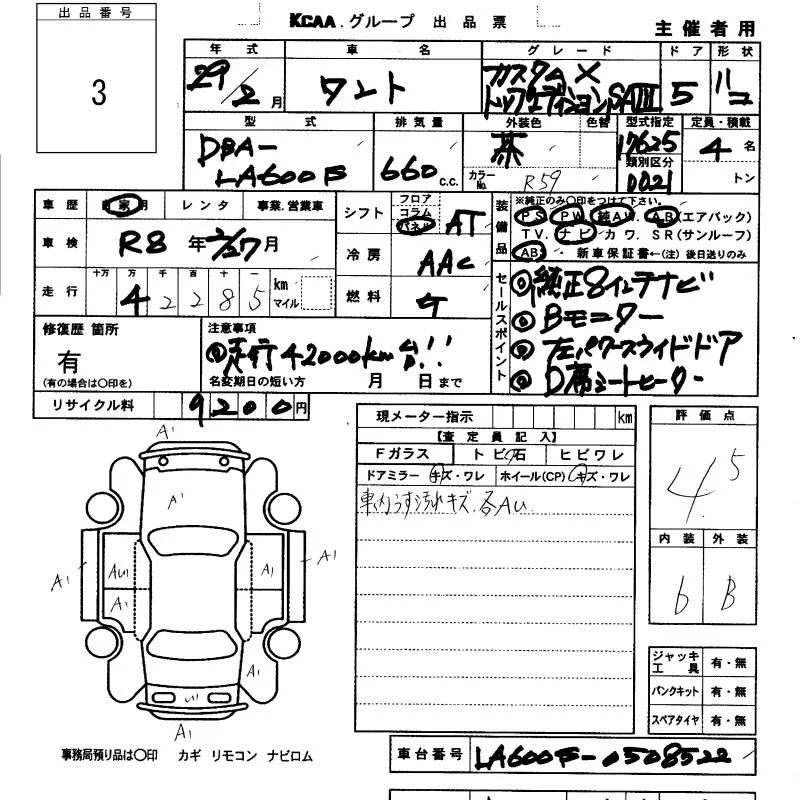 出品番号
3
KCAA.グループ 出品票
主催者用
年式 車名 グレード ドア 形状
29/2月 タント カスタムX トップエディションSAIII 5 ハコ
型式 排気量 外装色 色替 型式指定 定員・積載
DBA-LA600F 660 c.c. 茶 カラーNo. R59 17625 類別区分 0021 4名 トン
車歴 自家用 レンタ 事業.営業車
車検 R8年 2/27月
走行 十万 万 千 百 十 一 km マイル
4 2 2 8 5
シフト フロア コラム パネル AT
冷房 AAC
燃料 ケ
装備品 ※純正のみ〇印をつけて下さい。
PS PW 純AW AB(エアバック)
TV. ナビ カワ. SR(サンルーフ)
ABS・ 新車保証書←(注) 後日送りのみ
セールスポイント
◎純正8インチナビ
◎Bモニター
◎左パワースライドドア
◎D席シートヒーター
修復歴 箇所
有
(有の場合は〇印を)
注意事項
◎走行42000km台!!
名変期日の短い方 月 日まで
リサイクル料 9200円
現メーター指示 km
【査定員記入】
Fガラス トビ石 ヒビワレ
ドアミラー キズ・ワレ ホイール(CP) キズ・ワレ
車内うす汚れキズ. 各AU
評価点
4.5
内装 外装
b B
A1
A1
A1 AU1 A1 A1
A1
A1
A1
ジャッキ工具 有・無
パンクキット 有・無
スペアタイヤ 有・無
事務局預り品は〇印 カギ リモコン ナビロム
車台番号 LA600F-0508522